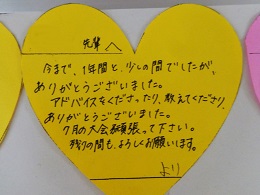 先輩へ
今まで、1年間と、少しの間でしたが、
ありがとうございました。
アドバイスをくださったり、教えてくださり、
ありがとうございました。
7月の大会頑張って下さい。
残りの間も、よろしくお願いします。
より